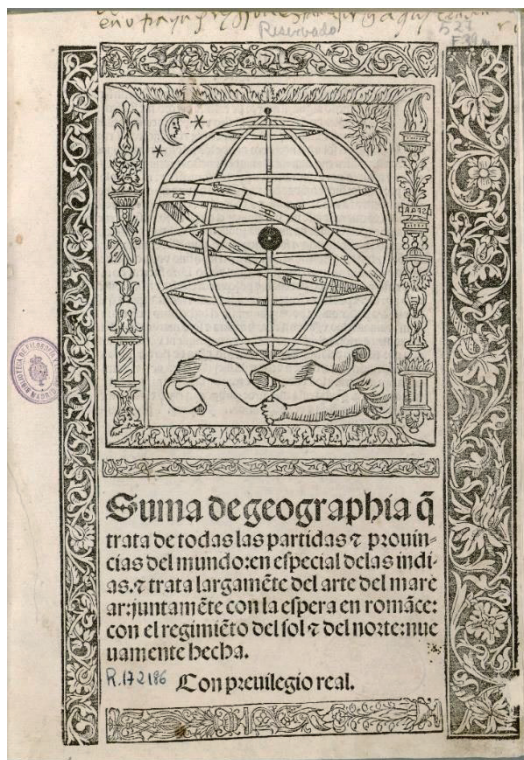 Reservado
Suma de geographia q̃
trata de todas las partidas ⁊ prouin-
cias del mundo: en especial delas indi-
as. ⁊ trata largamẽte del arte del mare
ar: juntamẽte con la espera en romãce:
con el regimiẽto del sol ⁊ del norte: nue
uamente hecha.
R.172186
Con preuilegio real.